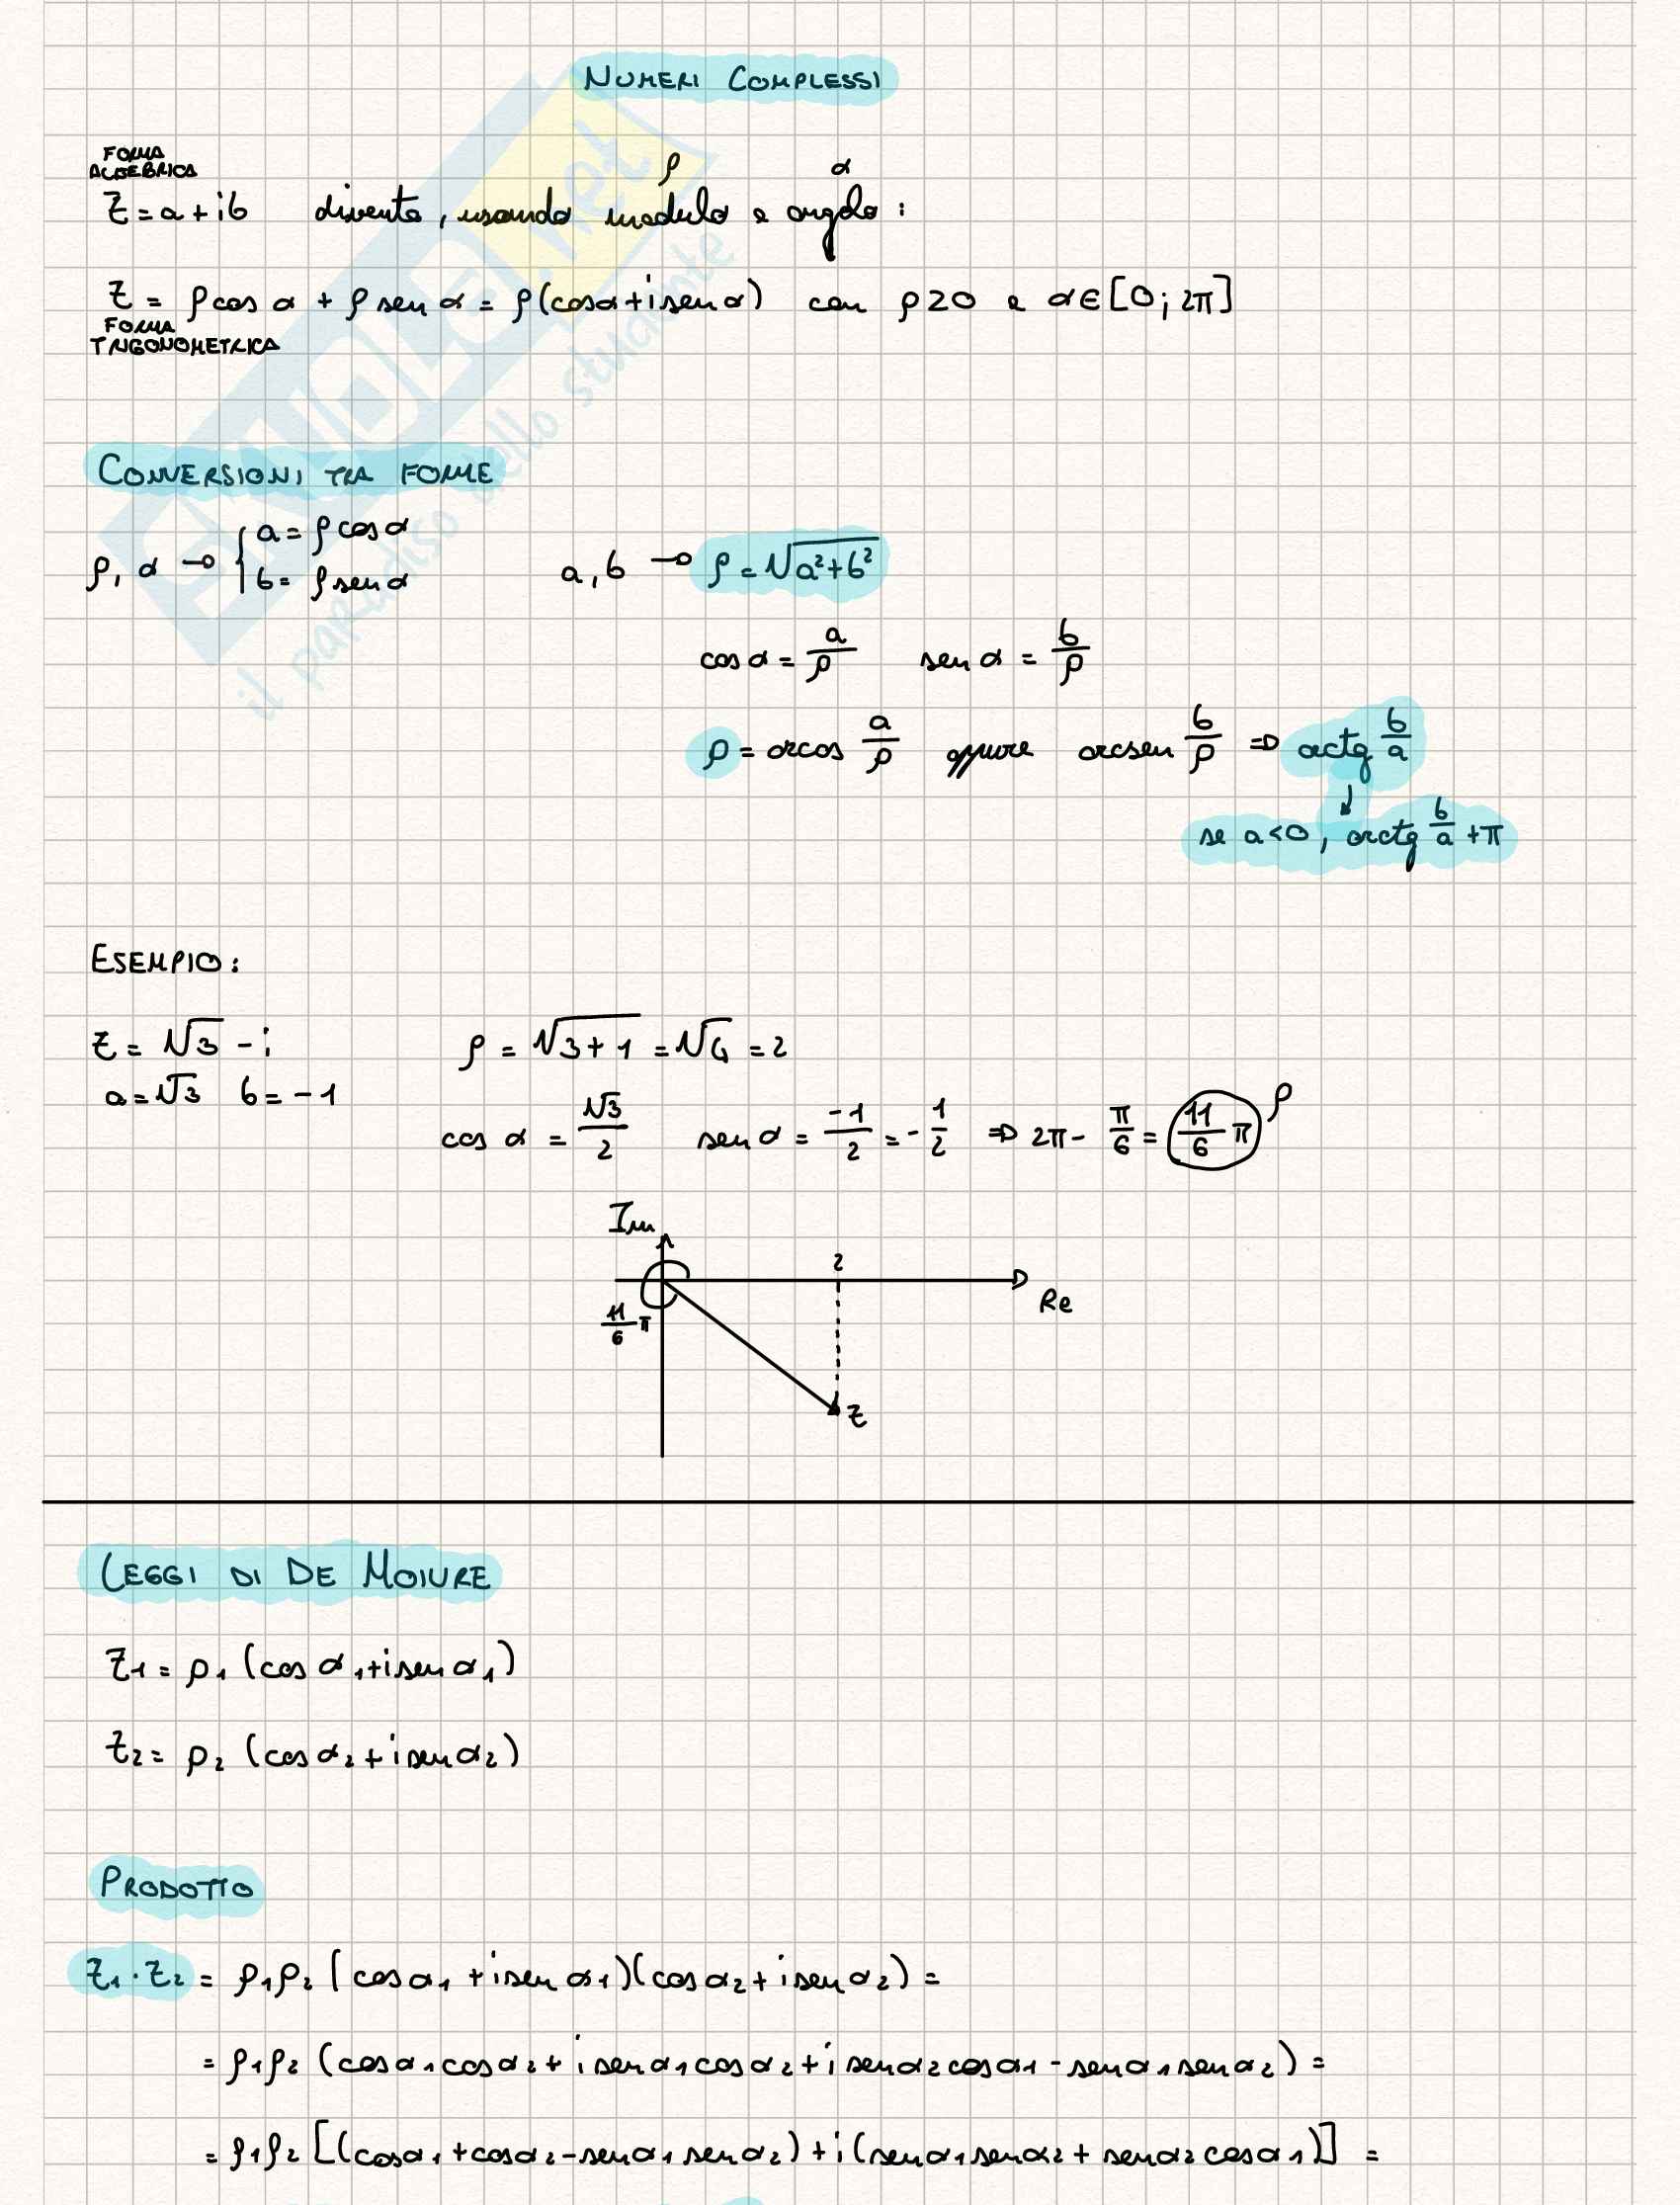 NUMERI COMPLESSI
FORMA ALGEBRICA
ρ α
z = a + ib diventa, usando modulo e angolo:
z = ρ cos α + ρ sen α = ρ(cos α + i sen α) con ρ ≥ 0 e α ∈ [0; 2π]
FORMA TRIGONOMETRICA
CONVERSIONI TRA FORME
ρ, α → { a = ρ cos α
b = ρ sen α
a, b → ρ = √(a² + b²)
cos α = a/ρ sen α = b/ρ
ρ = arcos a/ρ oppure arcsen b/ρ ⇒ arctg b/a
↓
se a < 0, arctg b/a + π
ESEMPIO:
z = √3 - i ρ = √(3 + 1) = √4 = 2
a = √3 b = -1
cos α = √3/2 sen α = -1/2 = -1/2 ⇒ 2π - π/6 = 11/6 π ρ
Im
2
Re
11/6 π
z
LEGGI DI DE MOIVRE
z₁ = ρ₁ (cos α₁ + i sen α₁)
z₂ = ρ₂ (cos α₂ + i sen α₂)
PRODOTTO
z₁ · z₂ = ρ₁ρ₂ (cos α₁ + i sen α₁)(cos α₂ + i sen α₂) =
= ρ₁ρ₂ (cos α₁ cos α₂ + i sen α₁ cos α₂ + i sen α₂ cos α₁ - sen α₁ sen α₂) =
= ρ₁ρ₂ [(cos α₁ + cos α₂ - sen α₁ sen α₂) + i (sen α₁ sen α₂ + sen α₂ cos α₁)] =
il paradiso dello studente